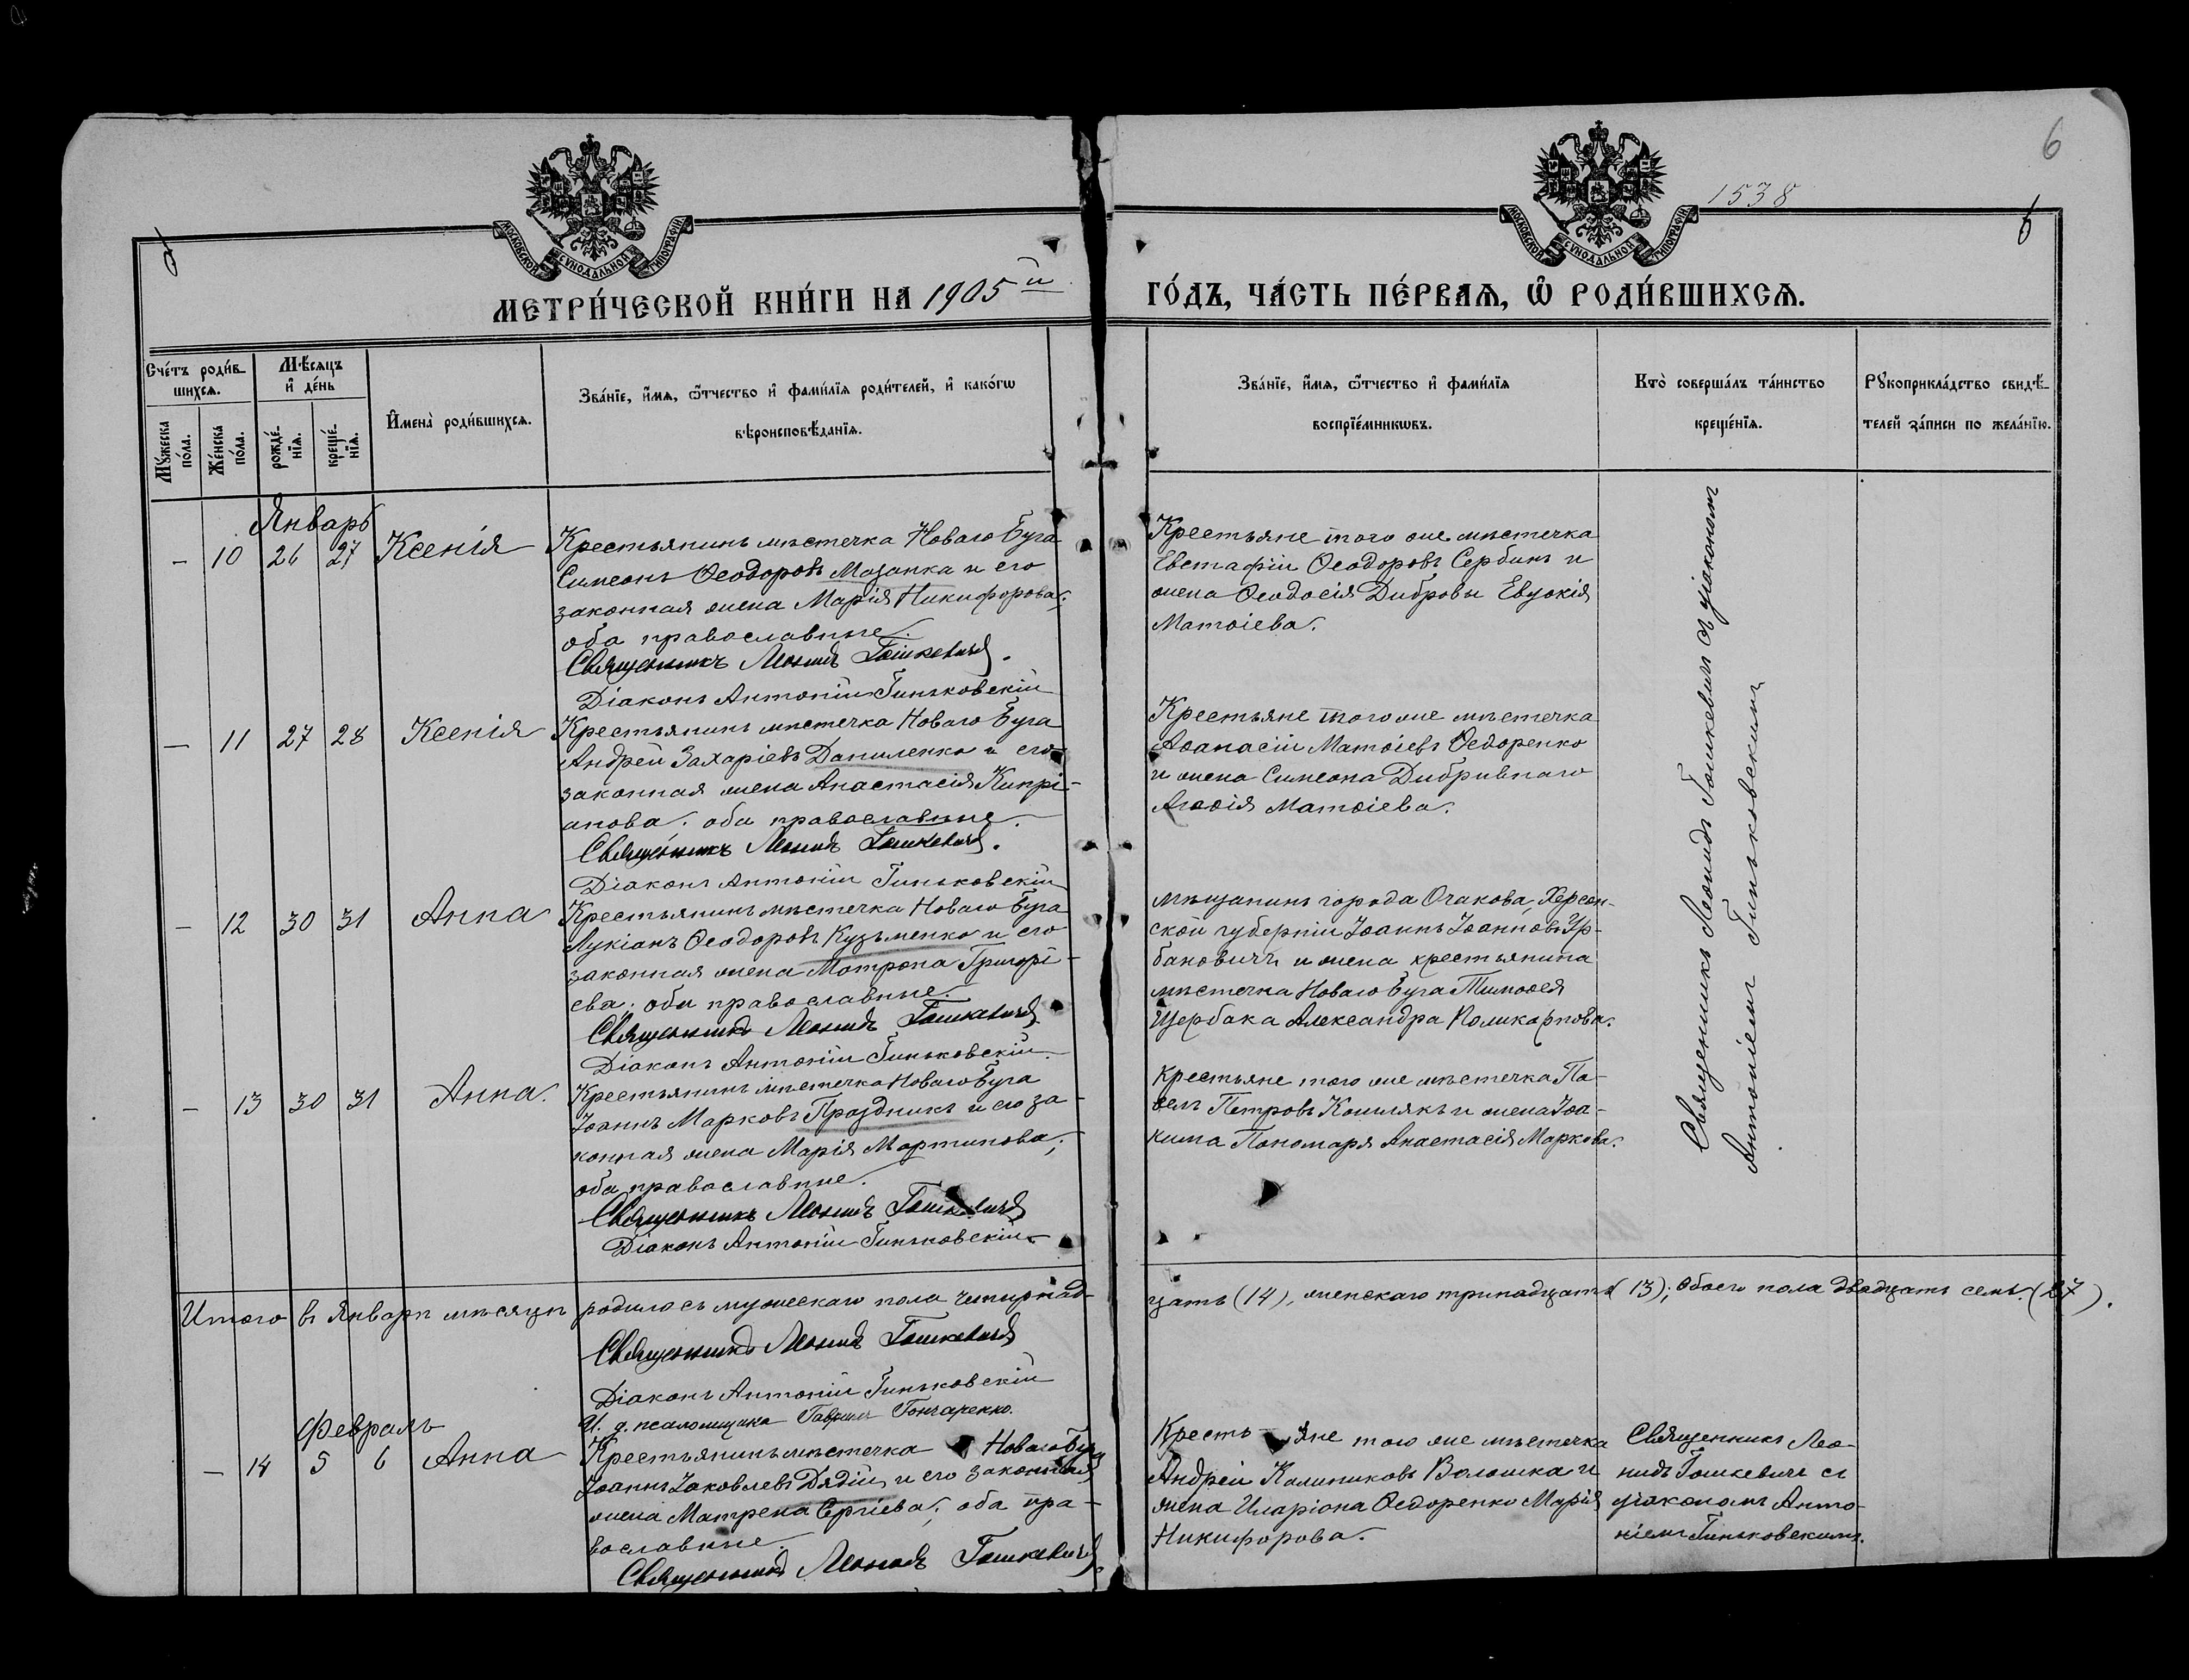 6
1538
МОСКОВСКОЙ СѴНОДАЛЬНОЙ ТИПОГРАФІИ
МОСКОВСКОЙ СѴНОДАЛЬНОЙ ТИПОГРАФІИ
МЕТРИ́ЧЕСКОЙ КНИ́ГИ НА 1905й ГО́ДЪ, ЧА́СТЬ ПЕ́РВАѦ, Ѡ҆ РОДИ́ВШИХСѦ.
Сче́тъ роди́в-
шихсѧ.
Мꙋ́жеска по́ла.
Же́нска по́ла.
Мѣ́сѧцъ и҆ де́нь
рожде́-нїѧ.
креще́-нїѧ.
И҆мена̀ роди́вшихсѧ.
Зва́нїе, и҆́мѧ, ѻ҆́тчество и҆ фами́лїѧ роди́телей, и҆ како́гѡ
вѣроисповѣ́данїѧ.
Зва́нїе, и҆́мѧ, ѻ҆́тчество и҆ фами́лїѧ
воспрїе́мникѡвъ.
Кто̀ соверша́лъ та́инство
креще́нїѧ.
Рꙋкоприкла́дство свидѣ́-
телей за́писи по жела́нїю.
Январь
– 10 26 27 Ксенія
Крестьянинъ мѣстечка Новаго Буга
Симеонъ Ѳеодоровъ Мазанка и его
законная жена Марія Никифорова;
оба православные.
Священникъ Леонидъ Гошкевичъ.
Діаконъ Антоній Гиньковскій
Крестьяне того же мѣстечка
Евстафій Ѳеодоровъ Сербинъ и
жена Ѳеодосія Дибровы Евдокія
Матѳіева.
– 11 27 28 Ксенія
Крестьянинъ мѣстечка Новаго Буга
Андрей Захаріевъ Даниленко и его
законная жена Анастасія Кипрі-
анова; оба православные.
Священникъ Леонидъ Гошкевичъ.
Діаконъ Антоній Гиньковскій
Крестьяне того же мѣстечка
Аѳанасій Матѳіевъ Ѳедоренко
и жена Симеона Дибривнаго
Агаѳія Матѳіева.
– 12 30 31 Анна
Крестьянинъ мѣстечка Новаго Буга
Лукіанъ Ѳеодоровъ Кузьменко и его
законная жена Матрона Григорі-
ева; оба православные.
Священникъ Леонидъ Гошкевичъ
Діаконъ Антоній Гиньковскій.
мѣщанинъ города Очакова, Херсон-
ской губерніи Іоаннъ Іоанновъ Ур-
бановичъ и жена крестьянина
мѣстечка Новаго Буга Тимоѳея
Щербака Александра Поликарпова.
– 13 30 31 Анна.
Крестьянинъ мѣстечка Новаго Буга
Іоаннъ Марковъ Праздникъ и его за-
конная жена Марія Мартинова;
оба православные.
Священникъ Леонидъ Гошкевичъ
Діаконъ Антоній Гиньковскій
Крестьяне того же мѣстечка Па-
велъ Петровъ Кошлякъ и жена Іоа-
кима Пономаря Анастасія Маркова.
Священникъ Леонидъ Гошкевичъ съ діакономъ
Антоніемъ Гиньковскимъ
Итого въ Январѣ мѣсяцѣ родилось мужескаго пола четырнад-
цать (14), женскаго тринадцать (13); обоего пола двадцать семь (27).
Священникъ Леонидъ Гошкевичъ
Діаконъ Антоній Гиньковскій
И. д. псаломщика Гавріилъ Гончаренко.
Февраль
– 14 5 6 Анна
Крестьянинъ мѣстечка Новаго Буга
Іоаннъ Іаковлевъ Дядій и его законная
жена Матрена Сергіева; оба пра-
вославные.
Священникъ Леонидъ Гошкевичъ
Кресть-яне того же мѣстечка
Андрей Калиниковъ Волошка и
жена Иларіона Ѳедоренко Марія
Никифорова.
Священникъ Лео-
нидъ Гошкевичъ съ
діакономъ Анто-
ніемъ Гиньковскимъ.